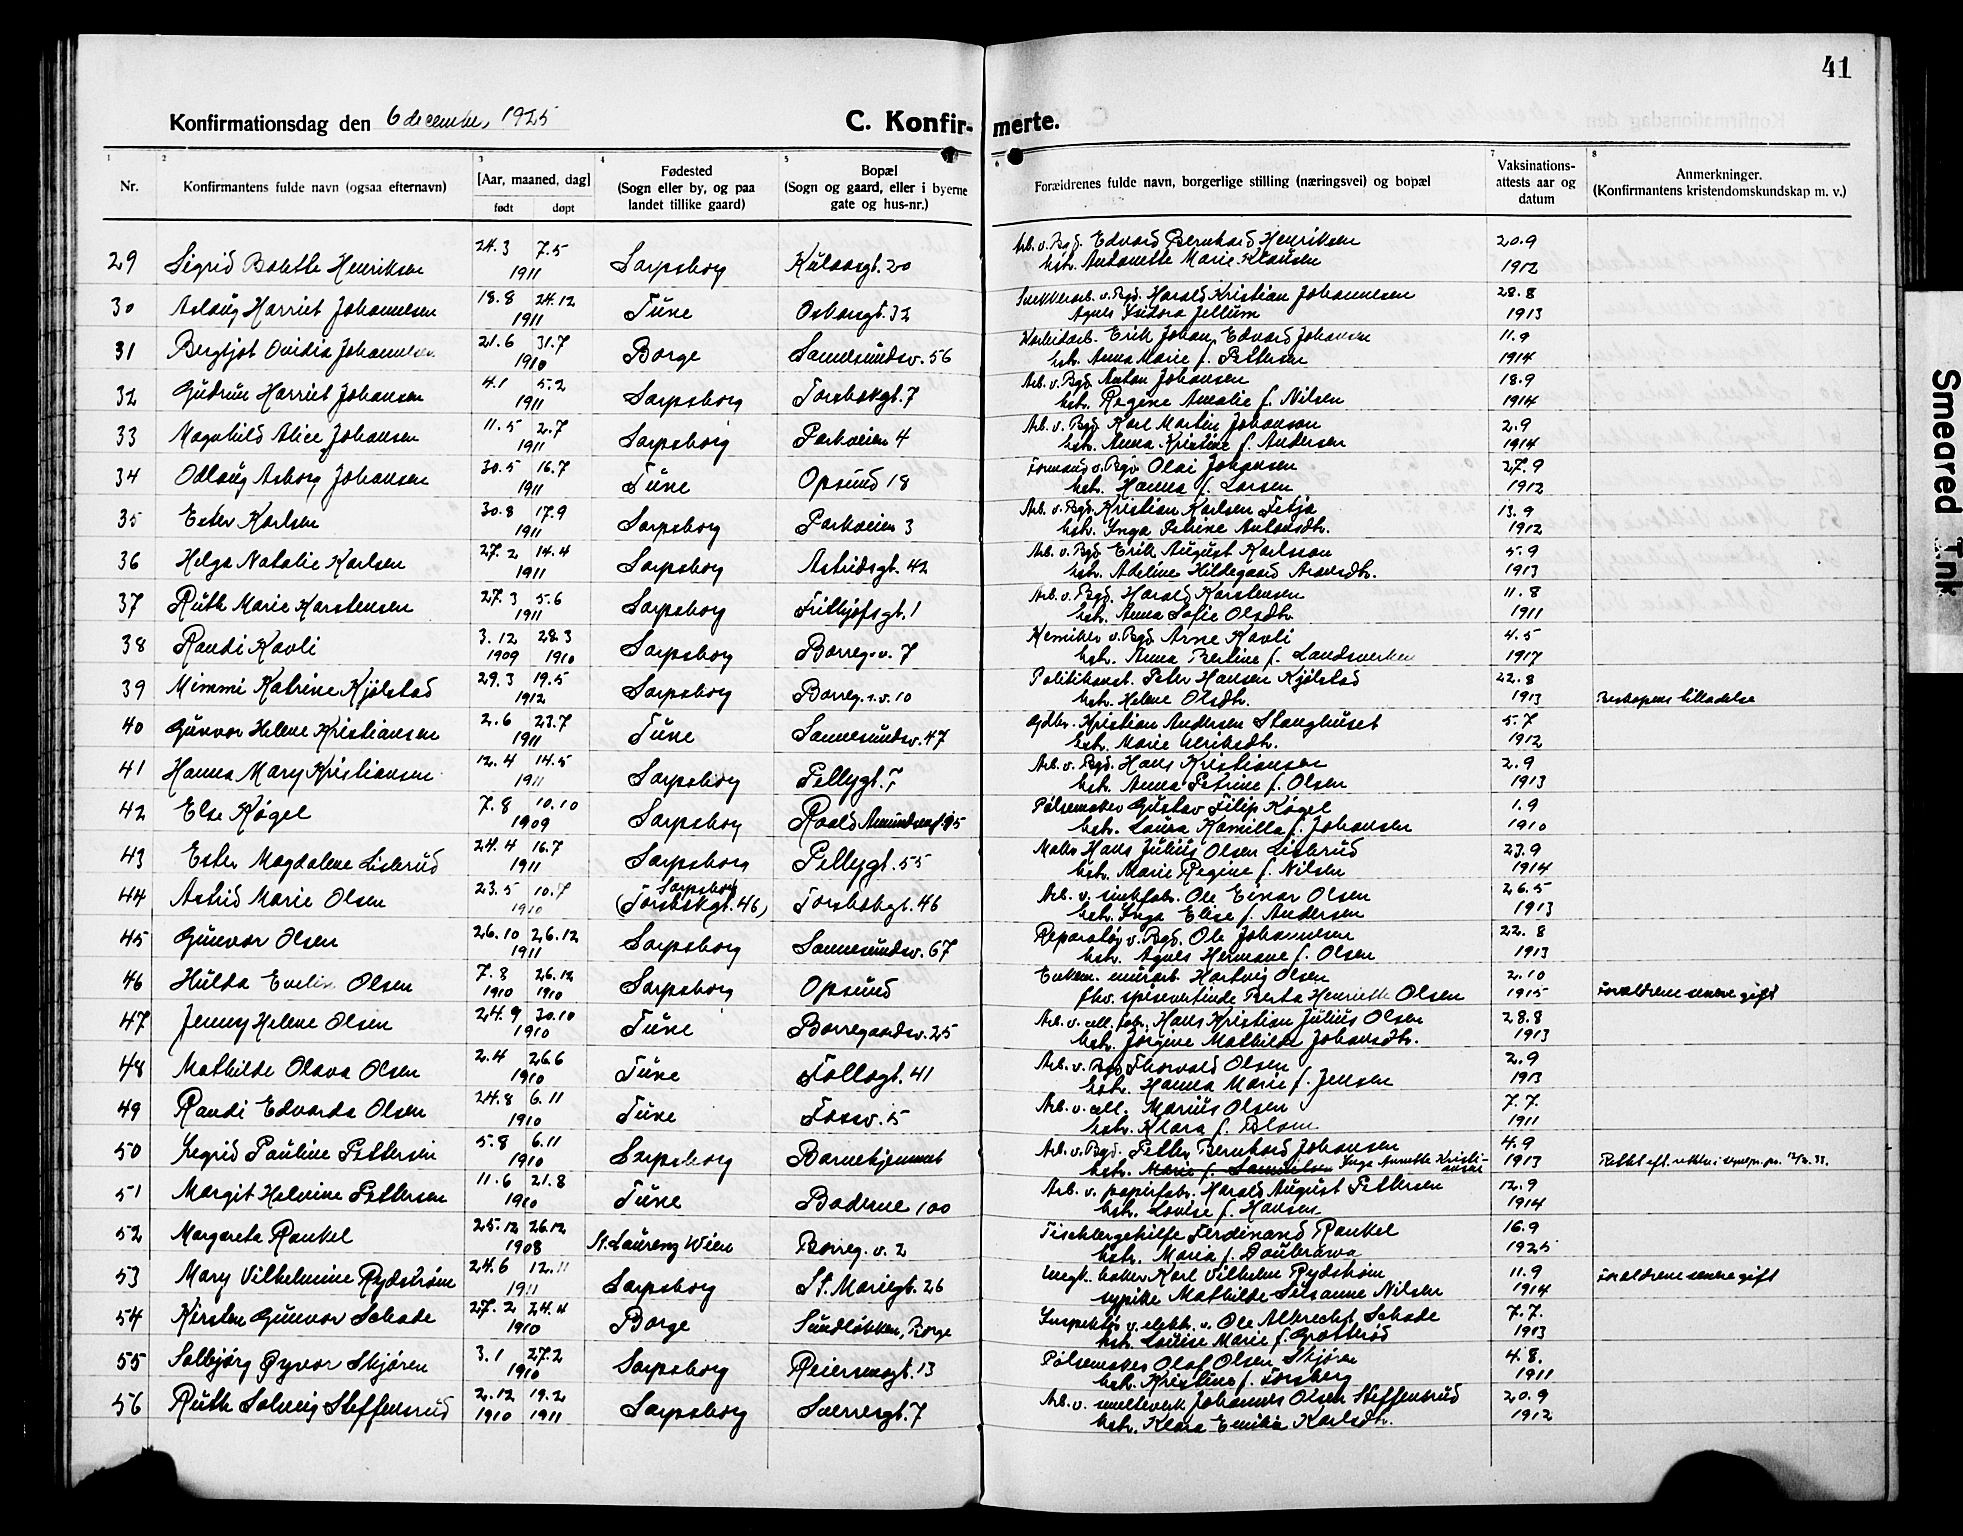 41
Konfirmationsdag den 6 december, 1925
C. Konfirmerte.
1 2 3 4 5 6 7 8
Nr. | Konfirmantens fulde navn (ogsaa efternavn) | [Aar, maaned, dag] født døpt | Fødested (Sogn eller by, og paa landet tillike gaard) | Bopæl (Sogn og gaard, eller i byerne gate og hus-nr.) | Forældrenes fulde navn, borgerlige stilling (næringsvei) og bopæl | Vaksinations-attests aar og datum | Anmerkninger. (Konfirmantens kristendomskundskap m. v.)
29 Sigrid Bolette Henriksen 24.3 7.5 1911 Sarpsborg Kulaasgt. 20 Arb. v. Bgd. Edvard Bernhard Henriksen 20.9
hstr. Antonette Marie Klausen 1912
30 Aslaug Harriet Johannesen 18.8 24.12 1911 Tune Oskarsgt. 32 Snekkerarb. v. Bgd. Harald Kristian Johannesen 28.8
Agnes Isidora Jellum 1913
31 Bergljot Ovidia Johannesen 21.6 31.7 1910 Borge Sannesundsv. 56 Erik Johan Edvard Johansen 11.9
hstr. Anna Marie f. Pettersen 1914
32 Gudrun Harriet Johansen 4.1 5.2 1911 Sarpsborg Torsbekgt. 7 Arb. v. Bgd. Anton Johansen 18.9
hstr. Regine Amalie f. Nilsen 1914
33 Magnhild Alice Johansen 11.5 2.7 1911 Sarpsborg Parkveien 4 Arb. v. Bgd. Karl Martin Johansen 2.9
hstr. Anna Kristine f. Andersen 1914
34 Odlaug Asborg Johansen 30.5 16.7 1911 Tune Opsund 18 Formand v. Bgd. Olai Johansen 27.9
hstr. Hanna f. Larsen 1912
35 Ester Karlsen 30.8 17.9 1911 Sarpsborg Parkveien 3 Arb. v. Bgd. Kristian Karlsen Fetja 13.9
hstr. Inga Petrine Antonsdtr. 1912
36 Helga Natalie Karlsen 27.2 14.4 1911 Sarpsborg Astridsgt. 42 Arb. v. Bgd. Erik August Karlsson 5.9
hstr. Adeline Hildegaard Aronsdtr. 1913
37 Ruth Marie Karstensen 27.3 5.6 1911 Sarpsborg Fritjofsgt. 1 Arb. v. Bgd. Harald Karstensen 11.8
hstr. Anna Sofie Olsdtr. 1911
38 Randi Kavli 3.12 1909 28.3 1910 Sarpsborg Borreg. v. 7 Kemiker v. Bgd. Arne Kavli 4.5
hstr. Anna Bertine f. Landsverken 1917
39 Mimmi Katrine Kjølstad 29.3 19.5 1912 Sarpsborg Borreg.s.v. 10 Politikonst. Peter Hansen Kjølstad 22.8
hstr. Helene Olsdtr. 1913 Biskopens tilladelse
40 Gunvor Helene Kristiansen 2.6 23.7 1911 Tune Sannesundsv. 47 Gdbr. Kristian Andersen Stanghuset 5.7
hstr. Marie Ulriksdtr. 1912
41 Hanna Mary Kristiansen 12.4 14.5 1911 Sarpsborg Pellygt. 7 Arb. v. Bgd. Hans Kristiansen 2.9
hstr. Anna Petrine f. Olsen 1913
42 Else Køgel 7.8 10.10 1909 Sarpsborg Roald Amundsensgt. 5 Pølsemaker Gustav Filip Køgel 1.9
hstr. Laura Kamilla f. Johansen 1910
43 Ester Magdalene Lisbrud 24.4 16.7 1911 Sarpsborg Pellygt. 55 Maler Hans Julius Olsen Lisbrud 23.9
hstr. Marie Regine f. Nilsen 1914
44 Astrid Marie Olsen 23.5 10.7 1910 Sarpsborg (Torsbekgt. 46) Torsbekgt. 46 Arb. v. sinkfabr. Ole Einar Olsen 26.5
hstr. Inga Elise f. Andersen 1913
45 Gunvor Olsen 26.10 26.12 1911 Sarpsborg Sannesundsv. 67 Reparatør v. Bgd. Ole Johannesen 22.8
hstr. Agnes Hermane f. Olsen 1913
46 Hulda Evelin Olsen 7.8 1910 26.12 1910 Sarpsborg Opsund Enkem. murarb. Hartvig Olsen 2.10
fhv. spisevertinde Berta Henriette Olsen 1915 Forældrene senere gift
47 Jenny Helene Olsen 24.9 30.10 1910 Tune Borregaardsv. 25 Arb. v. cell. fabr. Hans Kristian Julius Olsen 28.8
hstr. Jørgine Mathilde Johansdtr. 1913
48 Mathilde Olava Olsen 2.4 26.6 1910 Tune Follogt. 41 Arb. v. Bgd. Thorvald Olsen 2.9
hstr. Hanna Marie f. Jensen 1913
49 Randi Edvarda Olsen 24.8 6.11 1910 Tune Fossv. 15 Arb. v. cell. Marius Olsen 7.7.
hstr. Klara f. Blom 1911
50 Ingrid Pauline Pettersen 5.8 6.11 1910 Sarpsborg Barnehjemmet Arb. v. Bgd. Petter Bernhard Johansen 4.9
hstr. Marie f. Samuelsen Inga Annette Kristiansen 1913
51 Margit Helvine Pettersen 11.6 21.8 1910 Tune Baderne 100 Arb. v. papirfabr. Harald August Pettersen 12.9
hstr. Lovise f. Hansen 1914
52 Margareta Rankel 25.12 26.12 1908 St. Laurenz Wien Borreg. v. 2 Tischlergehilfe Ferdinand Rankel 16.9
hstr. Maria f. Doubrawa 1925
53 Mary Vilhelmine Rydstrøm 24.6 12.11 1911 Sarpsborg St. Mariegt. 26 Ungk. baker Karl Vilhelm Rydstrøm 11.9
sypike Mathilde Susanne Nilsen 1914 Forældrene senere gift
54 Kirsten Gunvor Schade 27.2 24.4 1910 Borge Sundløkken, Borge Inspektør v. elektr. v. Ole Albrecht Schade 7.7.
hstr. Louise Marie f. Grotterød 1913
55 Solbjørg Øyvor Skjøren 3.1 27.2 1910 Sarpsborg Reiersensgt. 13 Pølsemaker Olaf Olsen Skjøren 4.8.
hstr. Kristine f. Forsberg 1911
56 Ruth Solveig Steffensrud 2.12 1910 19.2 1911 Sarpsborg Sverresgt. 7 Arb. v. smelteverk Johannes Olsen Steffensrud 20.9
hstr. Klara Emilie Karlsdtr. 1912
Smeared Ink